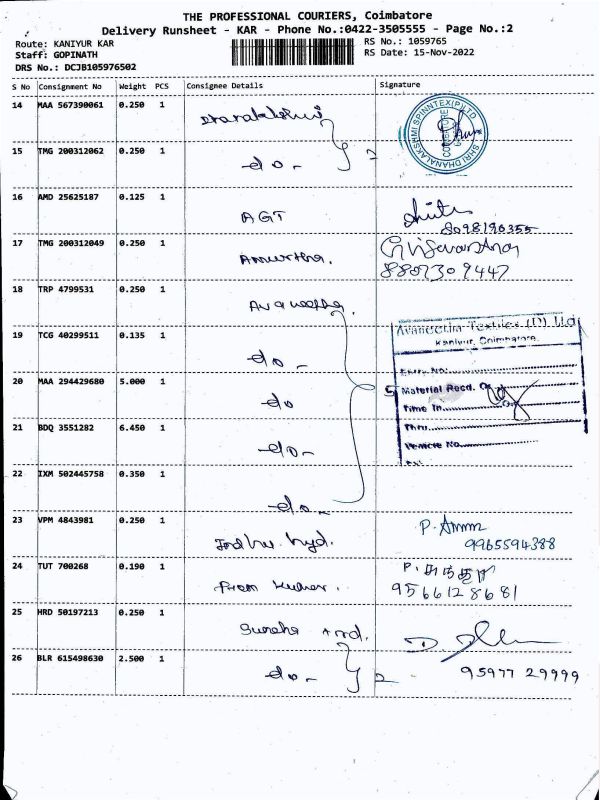 THE PROFESSIONAL COURIERS, Coimbatore
Delivery Runsheet - KAR - Phone No.:0422-3505555 - Page No.:2
Route: KANIYUR KAR RS No.: 1059765
Staff: GOPINATH RS Date: 15-Nov-2022
DRS No.: DCJB105976502
S No Consignment No Weight PCS Consignee Details Signature
14 MAA 567390061 0.250 1
SHRI DHANALAKSHMI SPINNTEX (P) LTD
15 TMG 200312062 0.250 1 do - 2
16 AMD 25625187 0.125 1 AGT
8098196355
17 TMG 200312049 0.250 1
8807309447
18 TRP 4799531 0.250 1 Avaneetha.
Avaneetha Textiles (P) Ltd
Kaniyur, Coimbatore.
19 TCG 40299511 0.135 1 do -
20 MAA 294429680 5.000 1 do 5
Material Recd. On
Time In
21 BDQ 3551282 6.450 1 do -
Thru
Vehicle No
22 IXM 502445758 0.350 1 do -
23 VPM 4843981 0.250 1 Indhu hyd. P. Amm
9965594388
24 TUT 700268 0.190 1 Prem Kumar.
9566128681
25 HRD 50197213 0.250 1 Suresh Ind.
26 BLR 615498630 2.500 1 do - 2 95977 29999